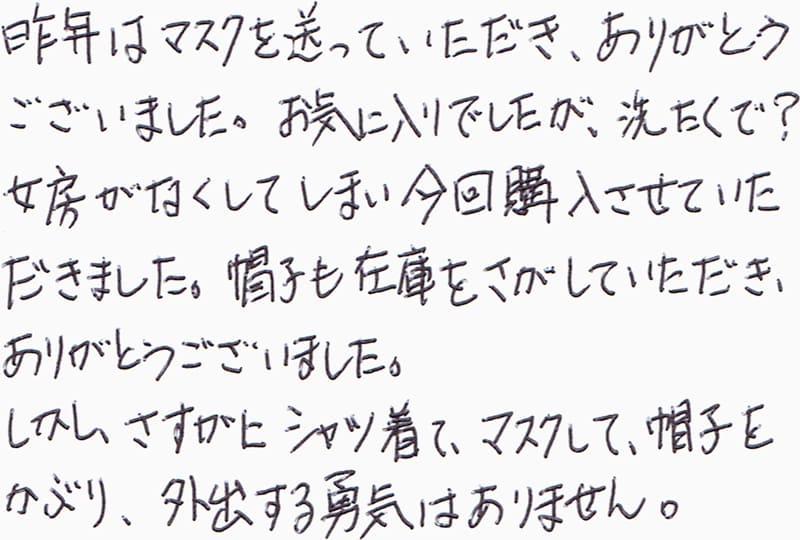 昨年はマスクを送っていただき、ありがとう
ございました。お気に入りでしたが、洗たくで？
女房がなくしてしまい今回購入させていた
だきました。帽子も在庫をさがしていただき、
ありがとうございました。
しかし、さすがにシャツ着て、マスクして、帽子を
かぶり、外出する勇気はありません。